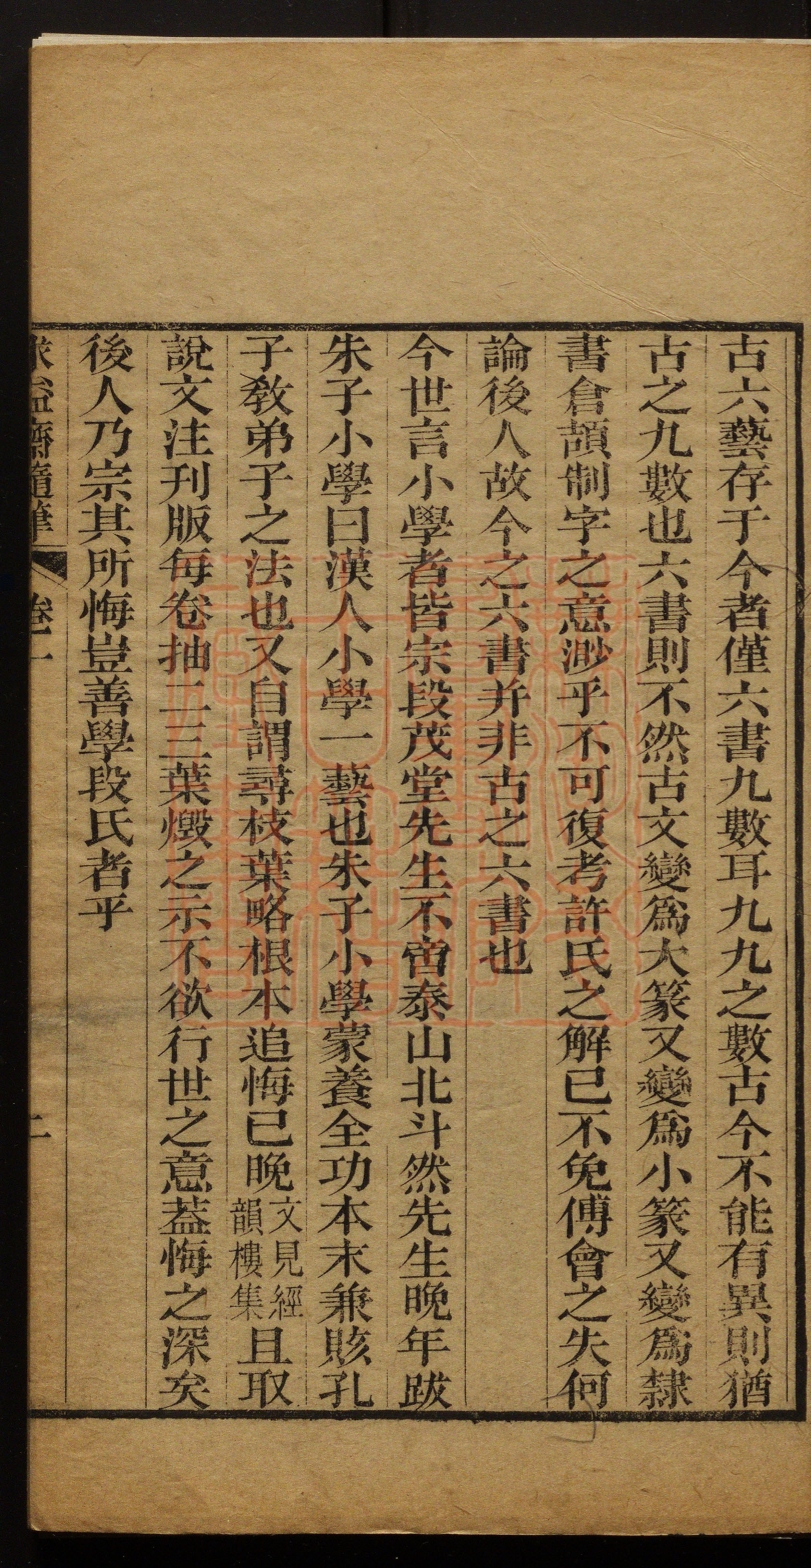 古六藝存于今者僅六書九數耳九九之數古今不能有異則猶
古之九數也六書則不然古文變爲大篆又變爲小篆又變爲隸
書倉頡制字之意渺乎不可復考許氏之解已不免傅會之失何
論後人故今之六書并非古之六書也
今世言小學者皆宗段茂堂先生不啻泰山北斗然先生晚年跋
朱子小學曰漢人小學一藝也朱子小學蒙養全功本末兼賅孔
子敎弟子之法也又自謂尋枝葉略根本追悔已晚文見經韻樓集且取
說文注刊版每卷抽二三葉燬之示不欲行世之意葢悔之深矣
後人乃宗其所悔豈善學段氏者乎
求益齋隨筆 卷一 二